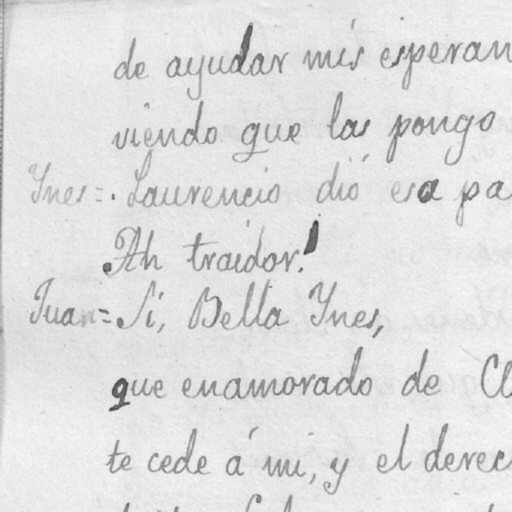 de ayudar mis esperan
viendo que las pongo
Ynes=. Laurencio dió esa pa
Ah traidor!
Juan= Si, Bella Ynes,
que enamorado de Cl
te cede á mi, y el derec